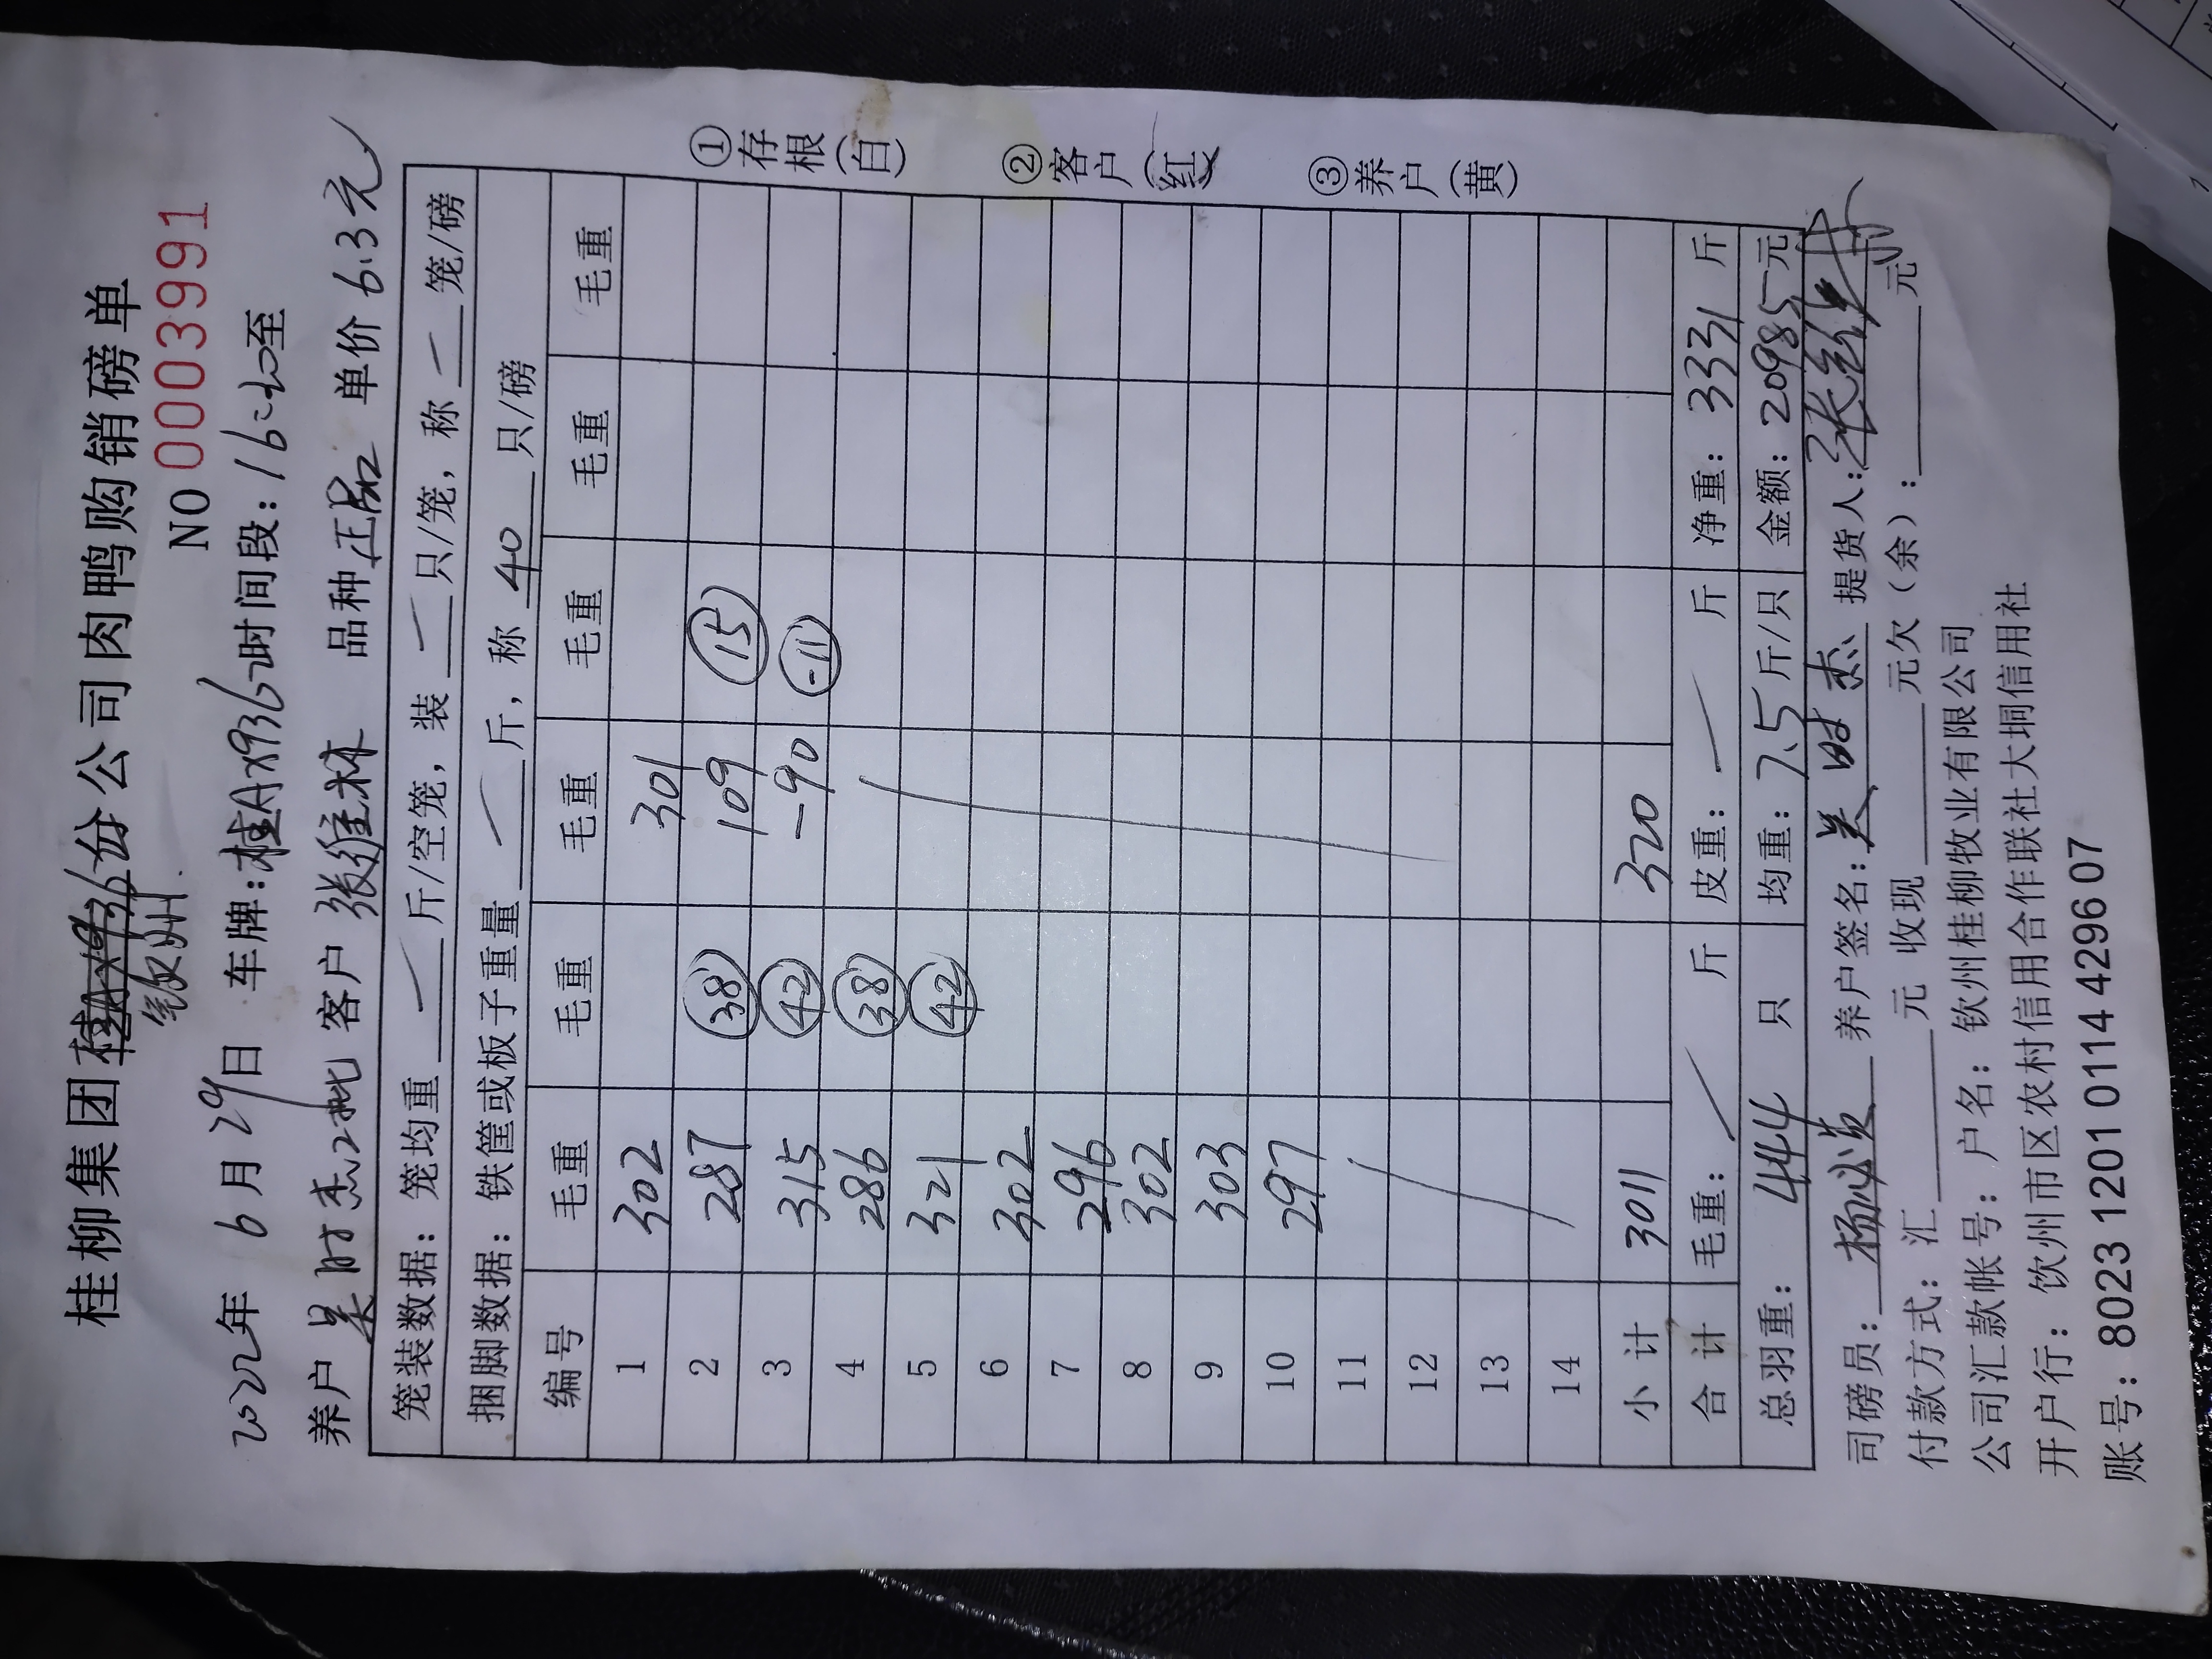 桂柳集团钦州份公司肉鸭购销磅单
NO 0003991
2022年 6月29日 车牌:桂AX936 时间段:16:20至
养户 吴时杰2批 客户 张维林 品种 正品 单价 6.3元
笼装数据: 笼均重 一 斤/空笼, 装 一 只/笼, 称 一 笼/磅
捆脚数据: 铁筐或板子重量 一 斤, 称 40 只/磅
编号 毛重 毛重 毛重 毛重 毛重 毛重
1 302 301
2 287 38 109 15
3 315 42 -90 -11
4 286 38
5 321 42
6 302
7 296
8 302
9 303
10 297
11
12
13
14
小计 3011 320
合计 毛重: 斤 皮重: 斤 净重: 3331 斤
总羽重: 444 只 均重: 7.5 斤/只 金额: 20985元
司磅员: 养户签名: 吴时杰 提货人: 张维林
付款方式: 汇 元 收现 元欠(余): 元
公司汇款帐号: 户名: 钦州桂柳牧业有限公司
开户行: 饮州市区农村信用合作联社大垌信用社
账号: 8023 1201 0114 4296 07
①存根(白)
②客户(红)
③养户(黄)